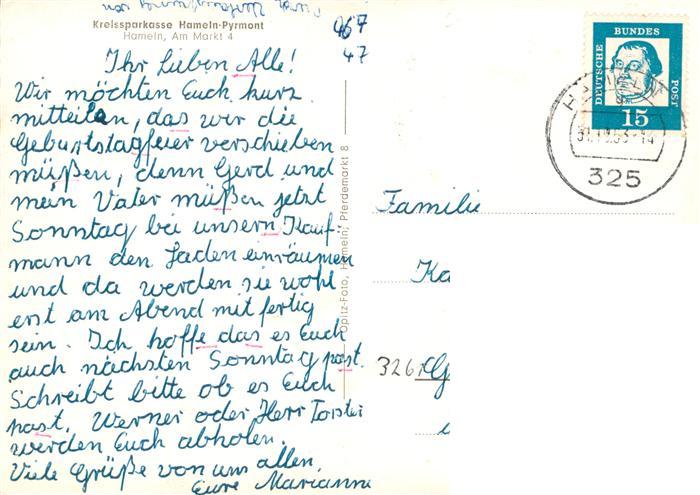 Kreissparkasse Hameln-Pyrmont
Hameln, Am Markt 4
967
47
Ihr Lieben Alle!
Wir möchten Euch kurz
mitteilen, das wir die
Geburtstagfeier verschieben
müßen, denn Gerd und
mein Vater müßen jetzt
Sonntag bei unsern Kauf-
mann den Laden einräumen
und da werden sie wohl
erst am Abend mit fertig
sein. Ich hoffe das es Euch
auch nächsten Sonntag past.
Schreibt bitte ob es Euch
past. Werner oder Herr Torster
werden Euch abholen.
Viele Grüße von uns allen,
Eure Marianne
Opitz-Foto, Hameln, Pferdemarkt 8
DEUTSCHE BUNDES POST
15
HAMELN
325
Familie
Ka
326